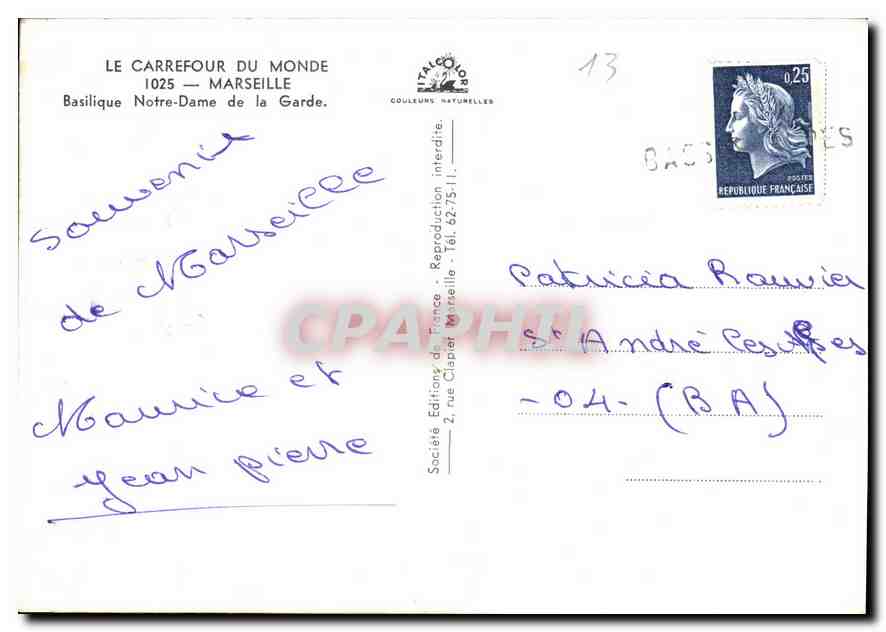 LE CARREFOUR DU MONDE
1025 — MARSEILLE
Basilique Notre-Dame de la Garde.
ITALCOLOR
COULEURS NATURELLES
13
0,25
POSTES
REPUBLIQUE FRANÇAISE
BASS PES
Souvenir
de Marseille
Maurice et
Jean pierre
Société Editions de France - Reproduction interdite.
2, rue Clapier Marseille - Tél. 62-75-11.
Patricia Rouvier
St André les Alpes
-04- (BA)
CPAPHIL